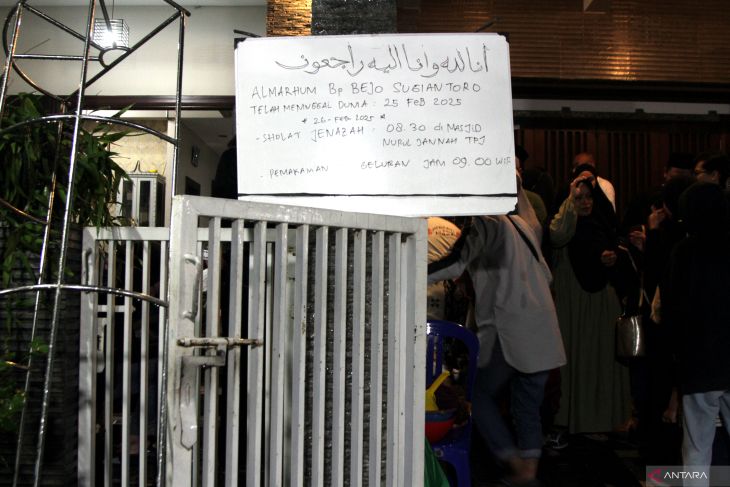 أنا لله وانا اليه راجعون
ALMARHUM Bp BEJO SUGIANTORO
TELAH MENINGGAL DUNIA : 25 FEB 2025
* 26 - FEB - 2025 *
- SHOLAT JENAZAH : 08.30 di MASJID
NURUL JANNAH TPJ
- PEMAKAMAN GELURAN JAM 09.00 WIB
ANTARA